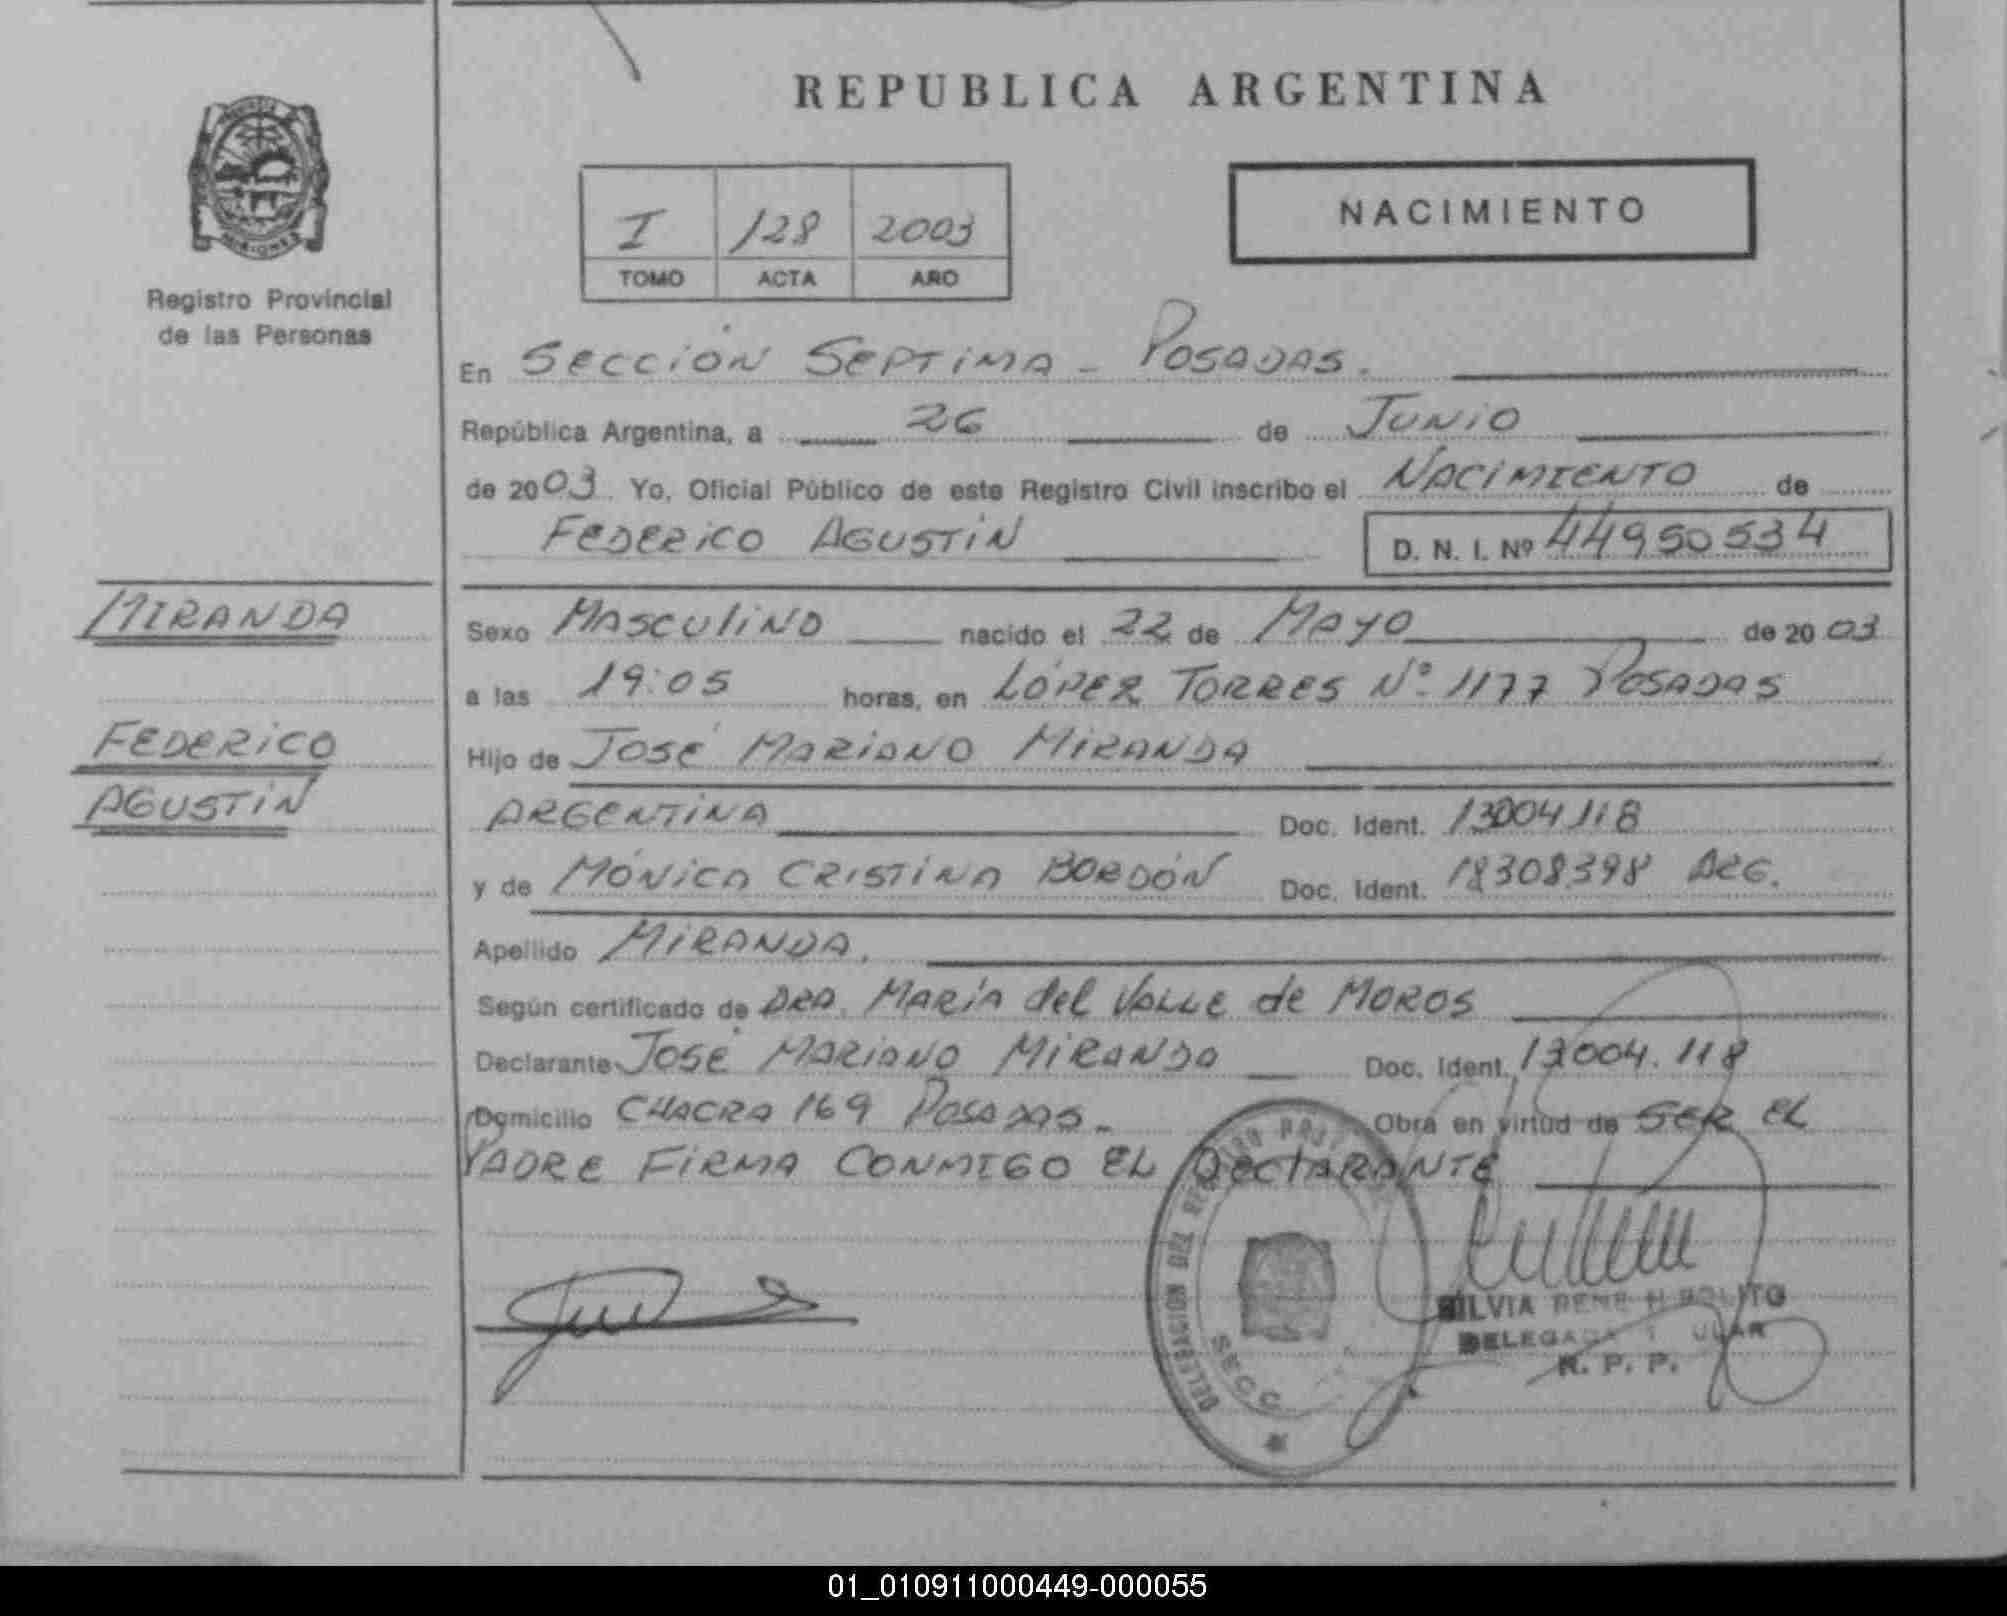 REPUBLICA ARGENTINA
MISIONES
Registro Provincial
de las Personas
I 128 2003
TOMO ACTA AÑO
NACIMIENTO
En SECCIÓN SEPTIMA - POSADAS.
República Argentina, a 26 de JUNIO
de 2003 Yo, Oficial Público de este Registro Civil inscribo el NACIMIENTO de
FEDERICO AGUSTIN D. N. I. Nº 44950534
MIRANDA
FEDERICO
AGUSTIN
Sexo MASCULINO nacido el 22 de MAYO de 2003
a las 19:05 horas, en LÓPEZ TORRES Nº 1177 POSADAS
Hijo de JOSÉ MARIANO MIRANDA
ARGENTINA Doc. Ident. 13004118
y de MÓNICA CRISTINA BORDÓN Doc. Ident. 18308398 ARG.
Apellido MIRANDA.
Según certificado de DRA. MARÍA del VALLE de MOROS
Declarante JOSÉ MARIANO MIRANDA Doc. Ident. 13004.118
Domicilio CHACRA 169 POSADAS- Obra en virtud de SER EL
PADRE FIRMA CONMIGO EL DECLARANTE
DELEGACION DEL
SECC
SILVIA
DELEGADA
R. P. P.
01_010911000449-000055